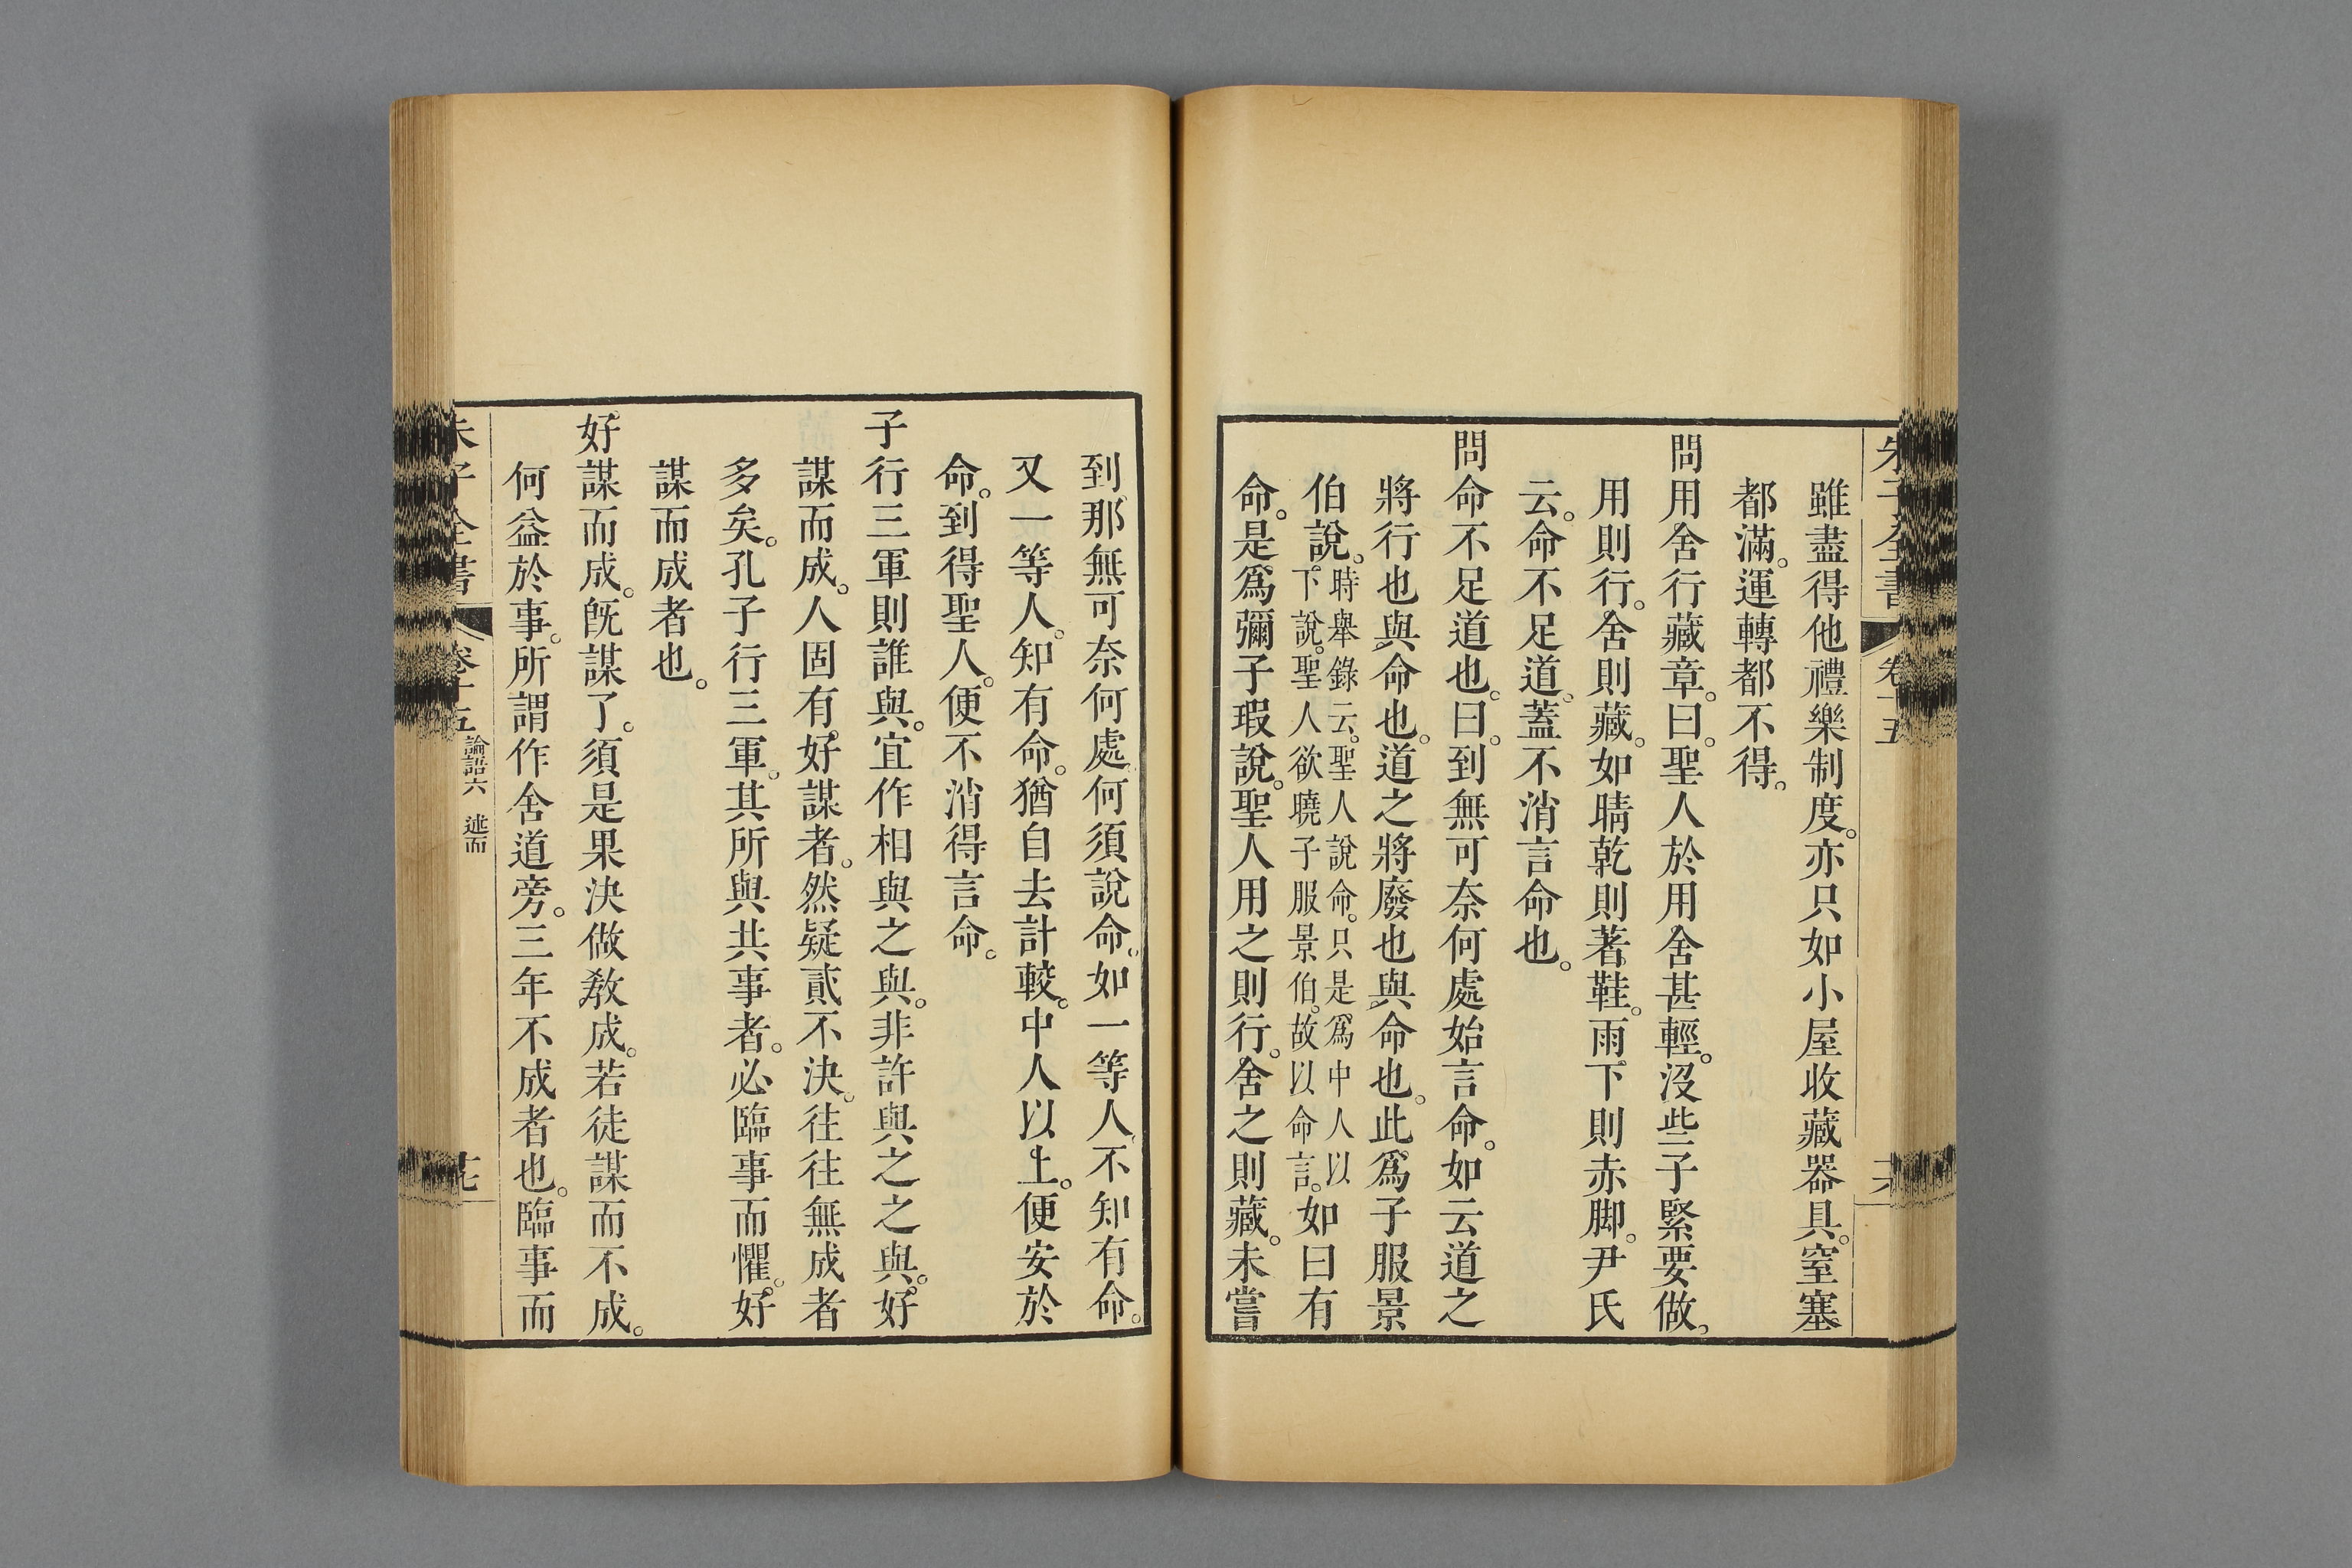 朱子全書 卷十五
雖盡得他禮樂制度。亦只如小屋收藏器具。窒塞
都滿。運轉都不得。
問用舍行藏章。曰。聖人於用舍甚輕。沒些子緊要做。
用則行。舍則藏。如晴乾則著鞋。雨下則赤脚。尹氏
云。命不足道。蓋不消言命也。
問命不足道也。曰。到無可奈何處始言命。如云道之
將行也與命也。道之將廢也與命也。此爲子服景
伯說。時舉錄云。聖人說命。只是爲中人以
下說。聖人欲曉子服景伯。故以命言。如曰有
命。是爲彌子瑕說。聖人用之則行。舍之則藏。未嘗
到那無可奈何處。何須說命。如一等人。不知有命。
又一等人。知有命。猶自去計較。中人以上。便安於
命。到得聖人。便不消得言命。
子行三軍則誰與。宜作相與之與。非許與之之與。好
謀而成。人固有好謀者。然疑貳不決。往往無成者
多矣。孔子行三軍。其所與共事者。必臨事而懼。好
謀而成者也。
好謀而成。旣謀了。須是果決做敎成。若徒謀而不成。
何益於事。所謂作舍道旁。三年不成者也。臨事而
朱子全書 卷十五 論語六 述而